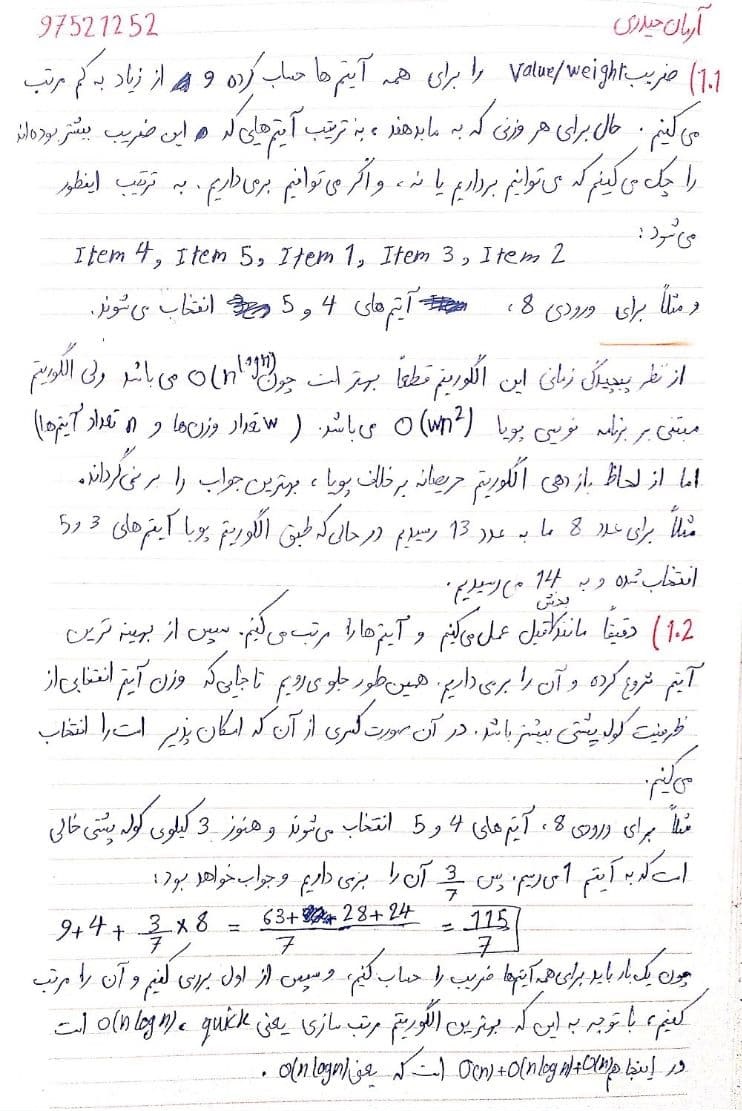 آرمان حیدری 97521252
1.1) ضریب Value/weight را برای همه آیتم ها حساب کرده و از زیاد به کم مرتب
می کنیم. حال برای هر وزنی که به ما بدهند، به ترتیب آیتم هایی که این ضریب بیشتر بوده اند
را چک می کنیم که می توانیم برداریم یا نه، و اگر می توانیم برمی داریم. به ترتیب اینطور
می شود:
Item 4, Item 5, Item 1, Item 3, Item 2
و مثلاً برای ورودی 8، آیتم های 4 و 5 انتخاب می شوند.
از نظر پیچیدگی زمانی این الگوریتم قطعاً بهتر است چون O(n logn) می باشد ولی الگوریتم
مبتنی بر برنامه نویسی پویا O(wn²) می باشد. (w تعداد وزن ها و n تعداد آیتم ها)
اما از لحاظ بازدهی الگوریتم حریصانه بر خلاف پویا، بهترین جواب را بر نمی گرداند.
مثلاً برای عدد 8 ما به عدد 13 رسیدیم در حالی که طبق الگوریتم پویا آیتم های 3 و 5
انتخاب شده و به 14 می رسیدیم.
1.2) دقیقاً مانند بخش قبل عمل می کنیم و آیتم ها را مرتب می کنیم. سپس از بهینه ترین
آیتم شروع کرده و آن را برمی داریم. همین طور جلو می رویم تا جایی که وزن آیتم انتخابی از
ظرفیت کوله پشتی بیشتر باشد. در آن صورت کسری از آن که امکان پذیر است را انتخاب
می کنیم.
مثلاً برای ورودی 8، آیتم های 4 و 5 انتخاب می شوند و هنوز 3 کیلوی کوله پشتی خالی
است که به آیتم 1 می رسیم. پس 3/7 آن را برمی داریم و جواب خواهد بود:
9+4+ 3/7 ×8 = (63+28+24)/7 = 115/7
چون یک بار باید برای همه آیتم ها ضریب را حساب کنیم، و سپس از اول بررسی کنیم و آن را مرتب
کنیم، با توجه به این که بهترین الگوریتم مرتب سازی یعنی quick، O(n logn) است
در اینجا هم O(n)+O(n logn)+O(n) است که یعنی O(n logn).